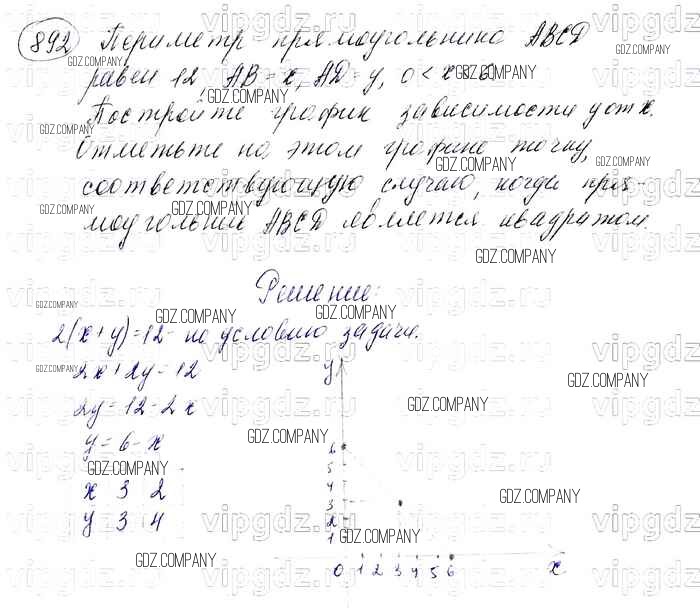 892 Периметр прямоугольника ABCD
равен 12, AB = x, AD = y, 0 < x < 6
Постройте график зависимости y от x.
Отметьте на этом графике точку,
соответствующую случаю, когда пря-
моугольник ABCD является квадратом.
Решение:
2(x+y)=12 - по условию задачи.
2x+2y=12
2y=12-2x
y=6-x
x 3 2
y 3 4
y
6
5
4
3
2
1
0 1 2 3 4 5 6 x
GDZ.COMPANY
vipgdz.ru